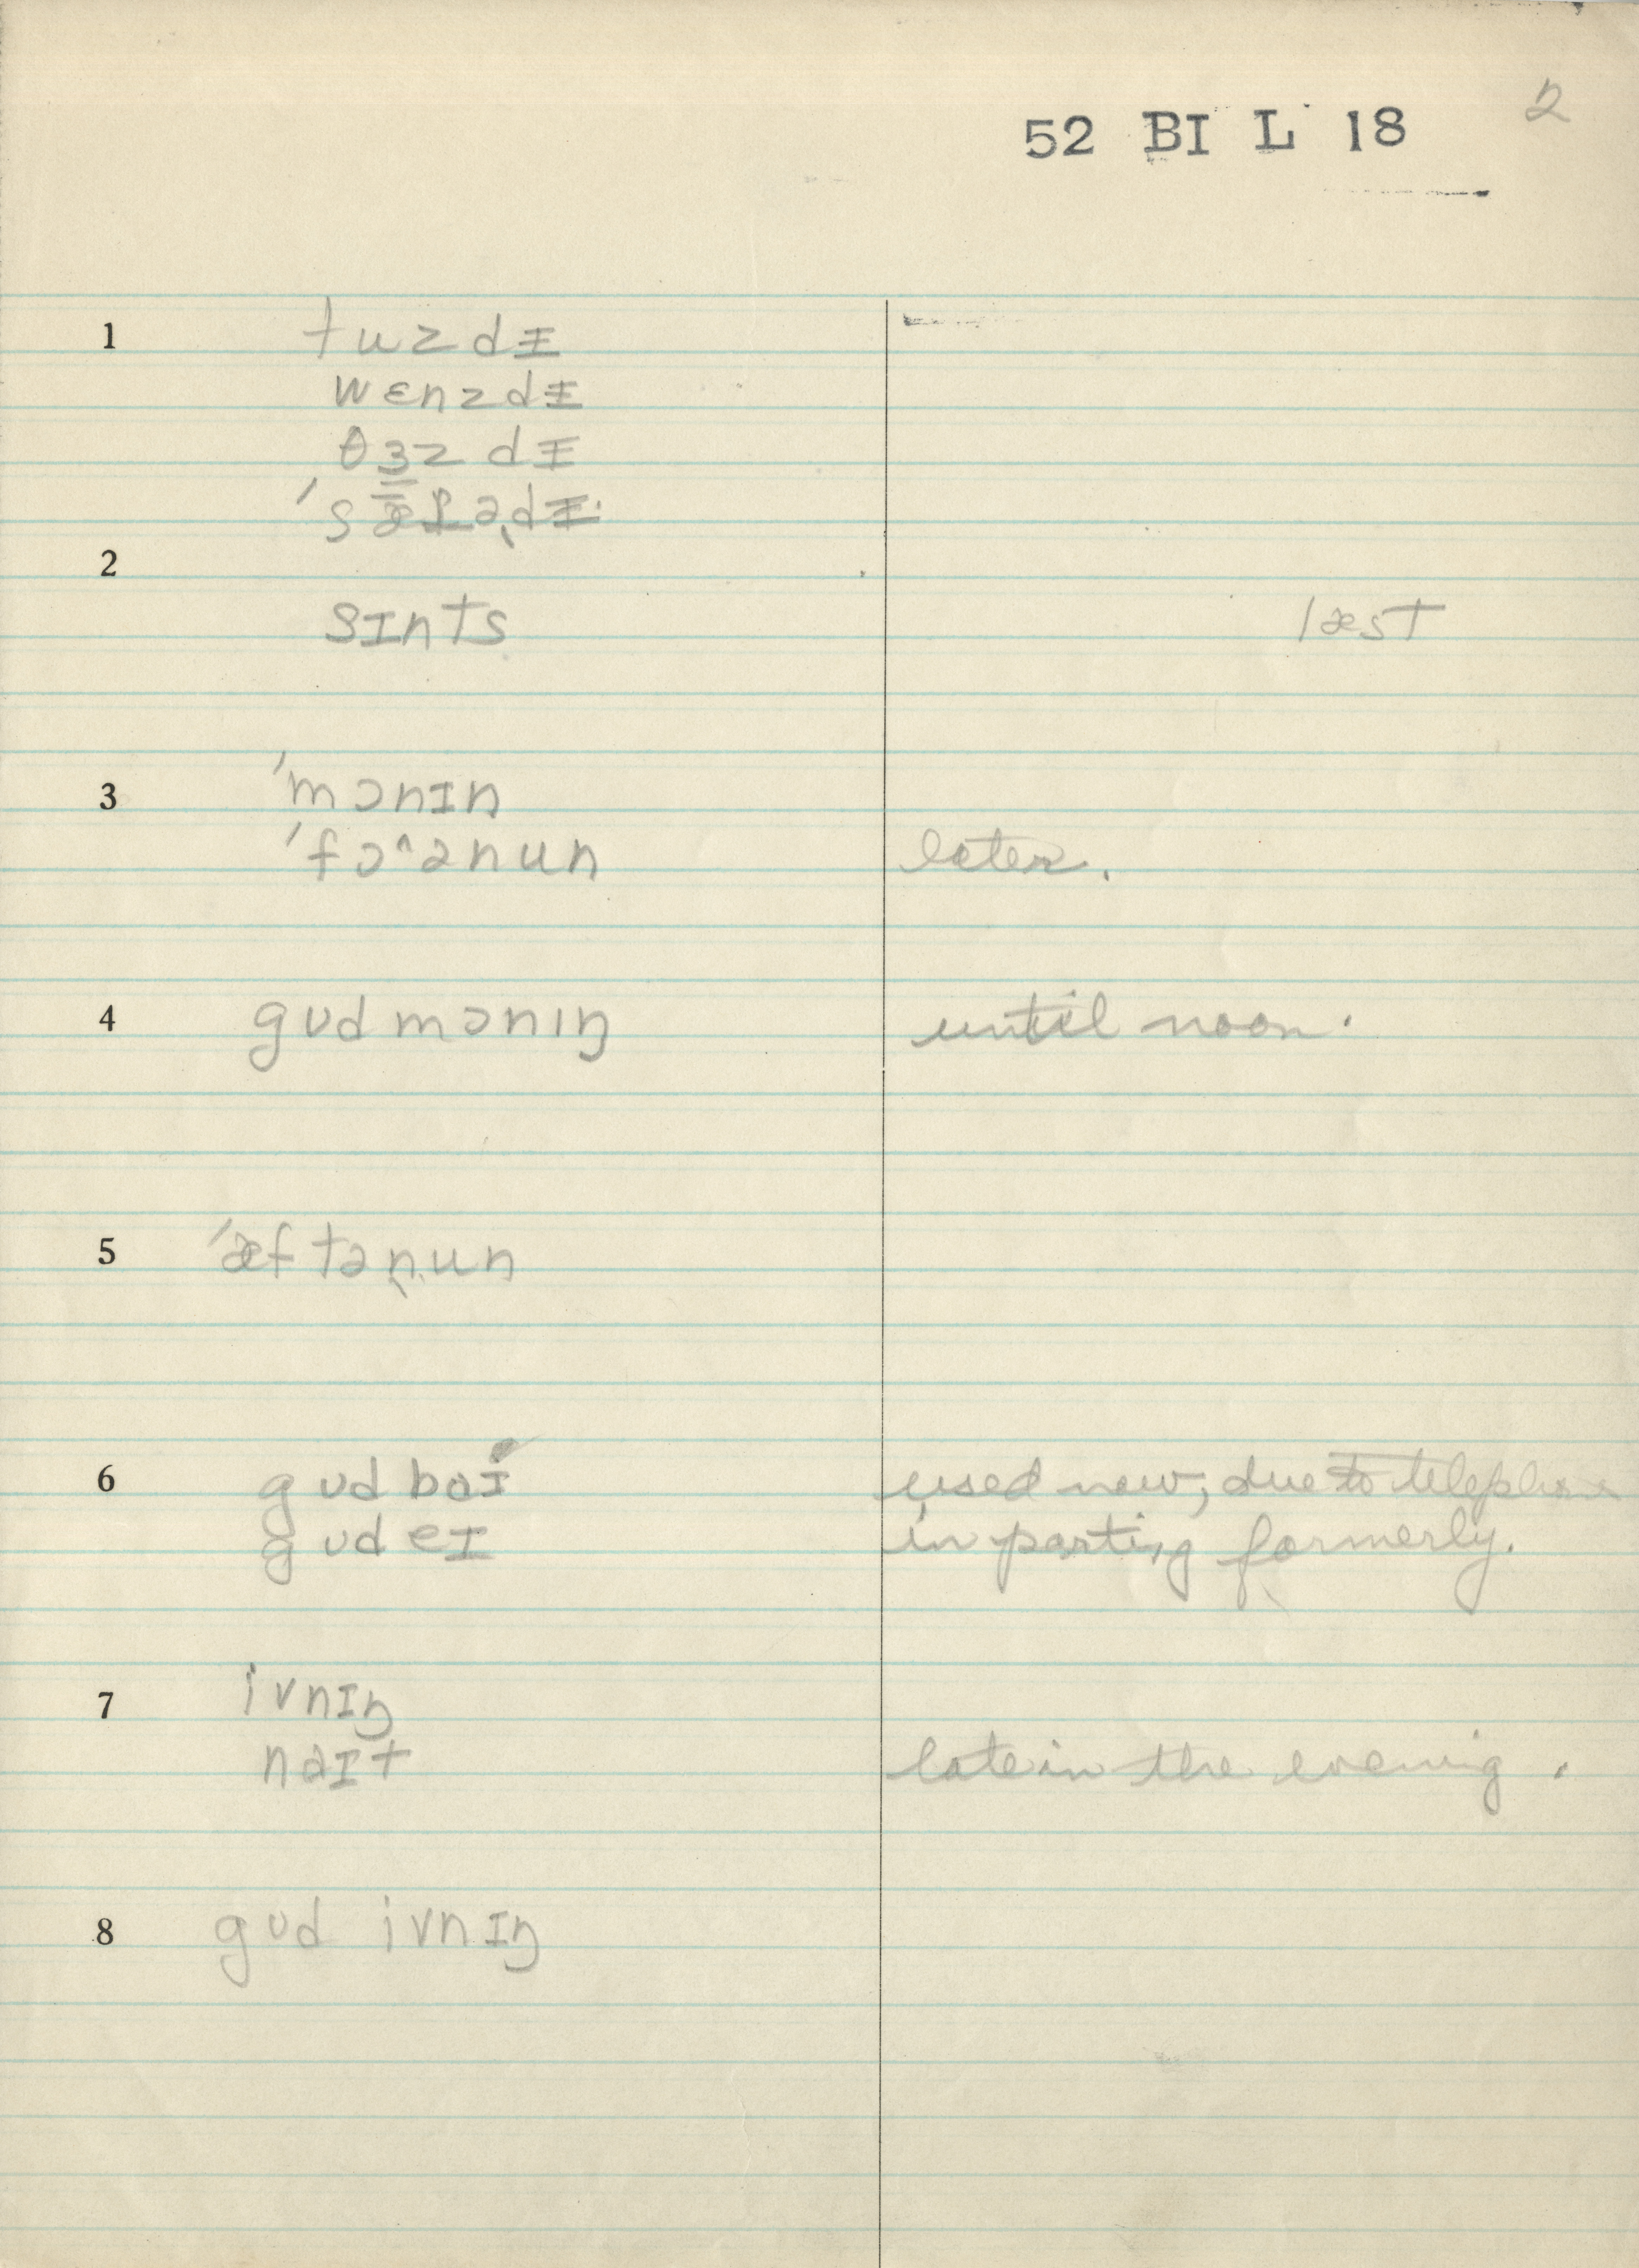 52 BI L 18 2
1 tuzdɪ
wɛnzdɪ
θɜz dɪ
ˈsætədɪ
2
sɪnts læst
3 ˈmɔnɪn
ˈfɔ^ənun later.
4 gʊdmɔnɪŋ until noon.
5 ˈæftənun
6 gʊdbaɪ used now, due to telephone
gʊdeɪ in parting formerly.
7 ivnɪŋ
naɪt late in the evening.
8 gʊd ivnɪŋ